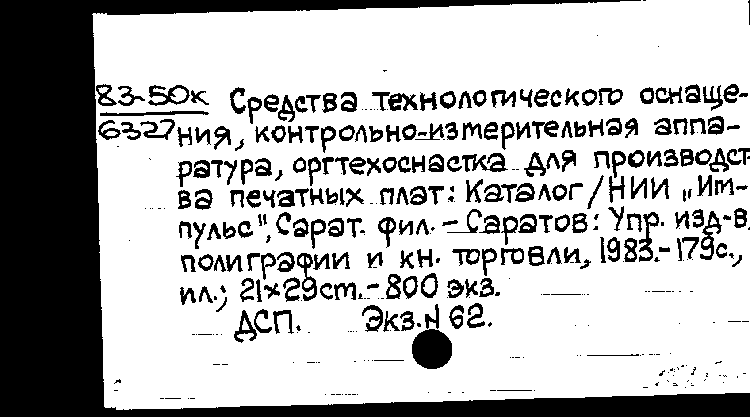 83-50к Средства технологического оснаще-
6327 ния, контрольно-измерительная аппа-
ратура, оргтехоснастка для производст-
ва печатных плат: Каталог/НИИ „Им-
пульс", Сарат. фил. - Саратов: Упр. изд-в,
полиграфии и кн. торговли, 1983.-179с.,
ил.; 21×29cm.-800 экз.
ДСП. Экз.N 62.